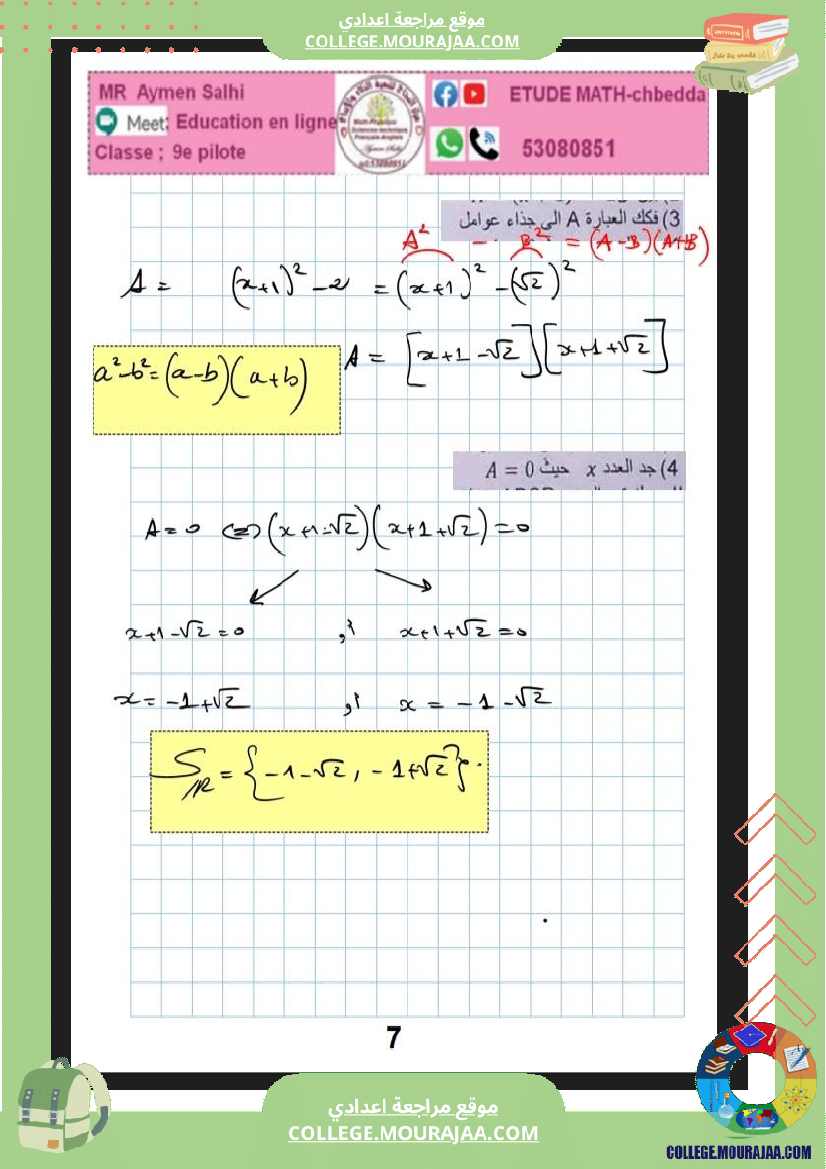 موقع مراجعة اعدادي
COLLEGE.MOURAJAA.COM
MR Aymen Salhi
Meet: Education en ligne
Classe ; 9e pilote
ETUDE MATH-chbedda
53080851
3) فكك العبارة A الى جذاء عوامل
A² - B² = (A-B)(A+B)
A = (x+1)² - 2 = (x+1)² - (√2)²
A = [x+1-√2][x+1+√2]
a²-b²=(a-b)(a+b)
4) جد العدد x حيث A = 0
A = 0 ⇔ (x+1-√2)(x+1+√2) = 0
x+1-√2 = 0 أو x+1+√2 = 0
x = -1+√2 أو x = -1-√2
S_IR = {-1-√2, -1+√2}.
7
موقع مراجعة اعدادي
COLLEGE.MOURAJAA.COM
COLLEGE.MOURAJAA.COM